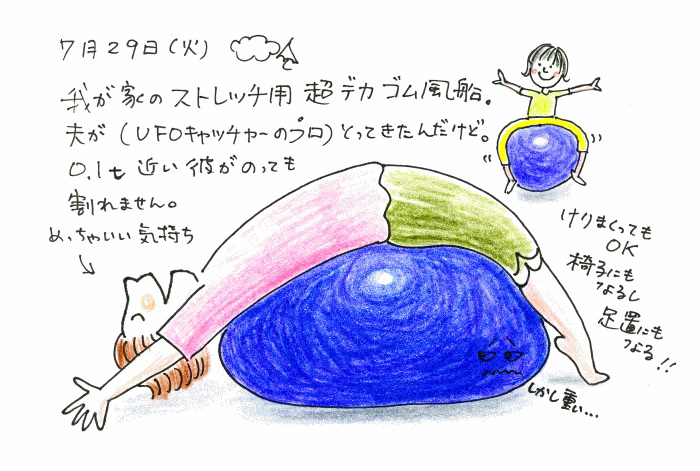 7月29日(火)
我が家のストレッチ用 超デカ ゴム風船。
夫が (UFOキャッチャーのプロ) とってきたんだけど。
0.1t 近い彼がのっても
割れません。
めっちゃいい気持ち
けりまくっても
OK
椅子にも
なるし
足置にも
なる!!
しかし重い...